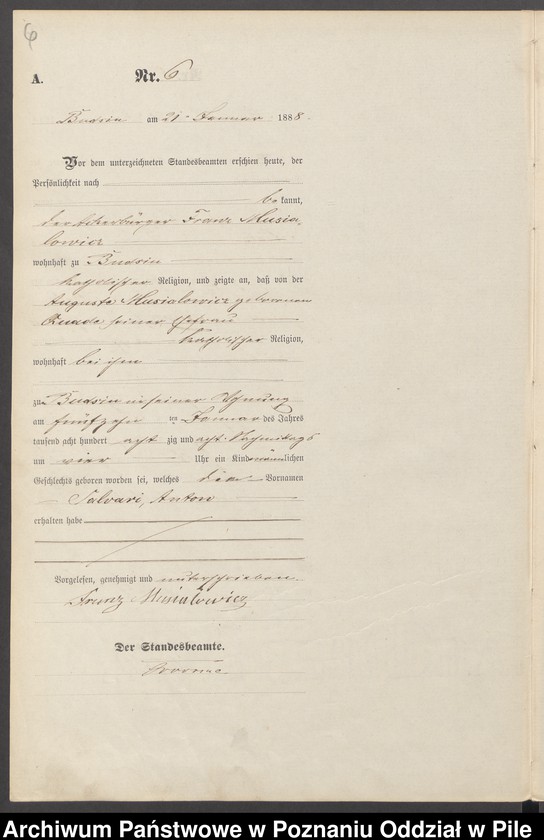 6
A.
Nr. 6
Budsin am 21 Januar 1888.
Vor dem unterzeichneten Standesbeamten erschien heute, der
Persönlichkeit nach
bekannt,
der Ackerbürger Franz Musia-
lowicz
wohnhaft zu Budsin
katholischer Religion, und zeigte an, daß von der
Auguste Musialowicz geborenen
Quade seiner Ehefrau
katholischer Religion,
wohnhaft bei ihm
zu Budsin in seiner Wohnung
am fünfzehn ten Januar des Jahres
tausend acht hundert acht zig und acht Nachmittags
um vier Uhr ein Kind männlichen
Geschlechts geboren worden sei, welches die Vornamen
Anton
erhalten habe
Vorgelesen, genehmigt und unterschrieben.
Franz Musialowicz
Der Standesbeamte.